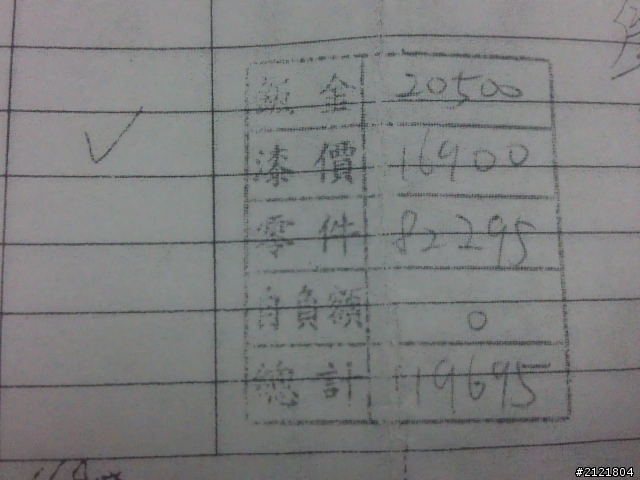 鈑金 20500
漆價 16900
零件 82295
自負額 0
總計 119695
#2121804